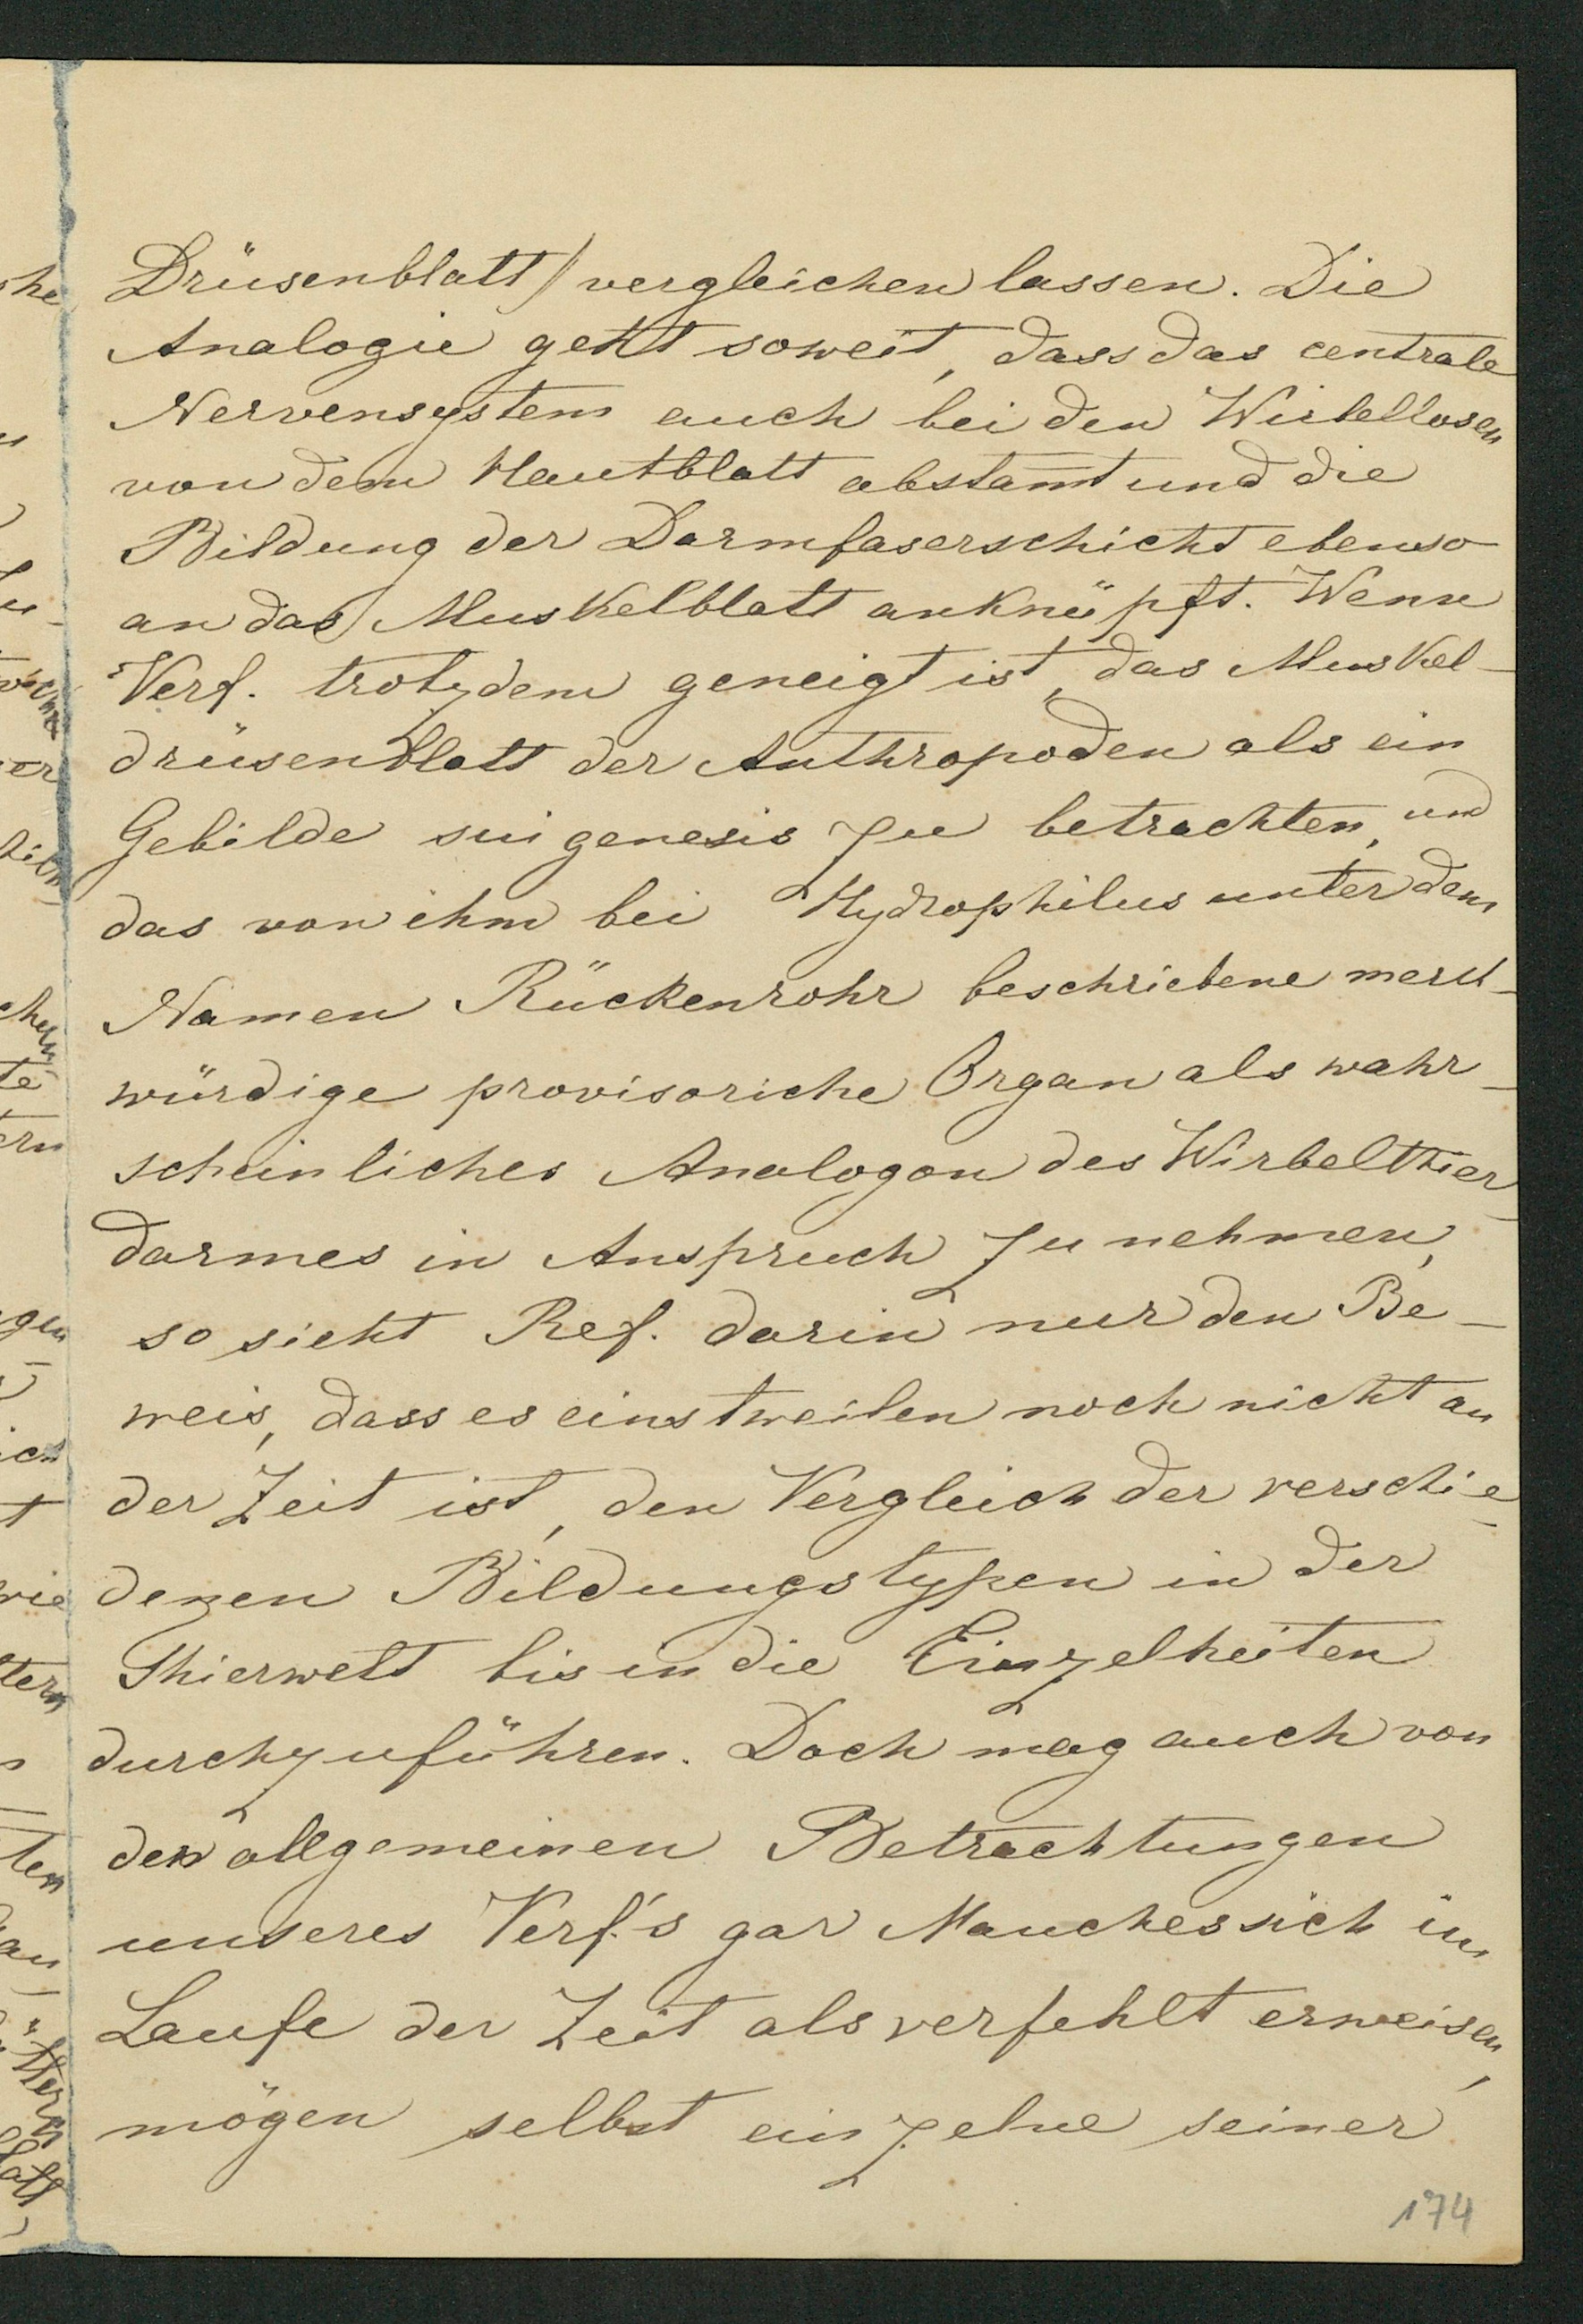 Drüsenblatt) vergleichen lassen. Die
Analogie geht soweit, dass das centrale
Nervensystem auch bei den Wirbellosen
von dem Hautblatt abstamt und die
Bildung der Darmfaserschicht ebenso
an das Muskelblatt anknüpft. Wenn
Verf. trotzdem geneigt ist, das Muskel-
drüsenblatt der Anthropoden als ein
Gebilde sui genesis zu betrachten, und
das von ihm bei Hydrophilus unter dem
Namen Rückenrohr beschriebene merk-
würdige provisoriche Organ als wahr-
scheinliches Analogon des Wirbelthier-
darmes in Anspruch zu nehmen,
so sieht Ref. darin nur den Be-
weis, dass es einstweilen noch nicht an
der Zeit ist, den Vergleich der verschie-
denen Bildungstypen in der
Thierwelt bis in die Einzelheiten
durchzuführen. Doch mag auch von
den allgemeinen Betrachtungen
unseres Verf.'s gar Manches sich im
Laufe der Zeit als verfehlt erweisen,
mögen selbst einzelne seiner
174